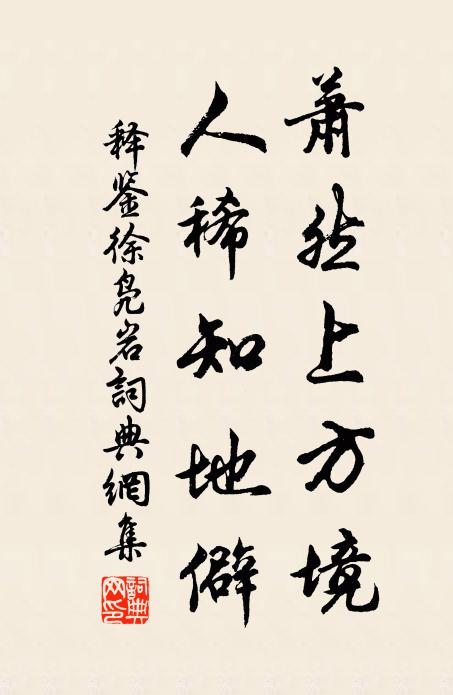 蕭然上方境
人稀知地僻
释鉴徐凫岩詞典網集
詞典网印